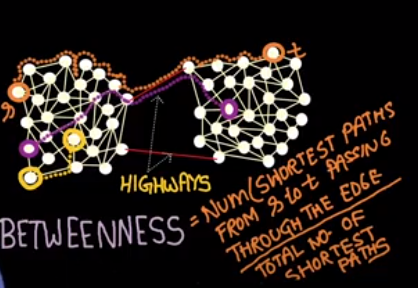 s
t
HIGHWAYS
BETWEENNESS =
NUM(SHORTEST PATHS
FROM s to t PASSING
THROUGH THE EDGE
TOTAL NO. OF
SHORTEST
PATHS